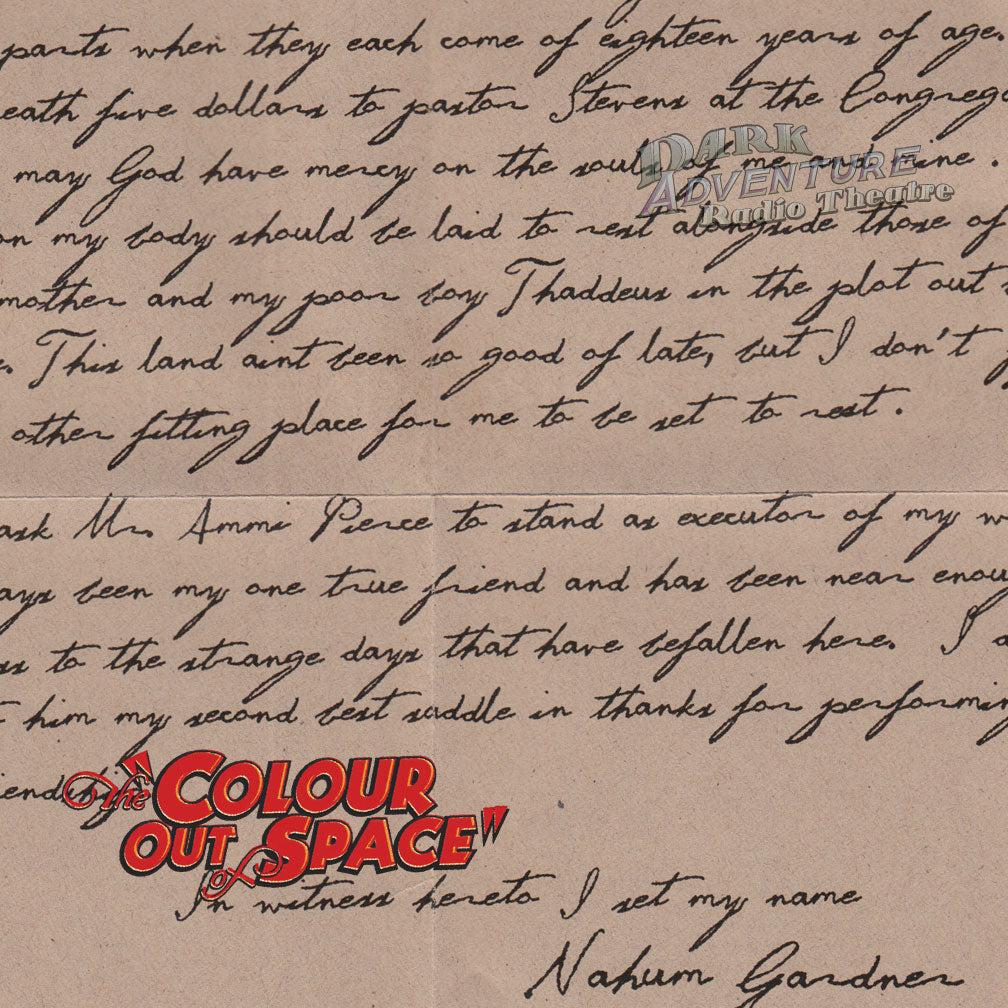 parts when they each come of eighteen years of age.
eath five dollars to pastor Stevens at the Congrega
may God have mercy on the souls of me and mine.
on my body should be laid to rest alongside those of
mother and my poor boy Thaddeus in the plot out
e. This land aint been so good of late, but I don't
other fitting place for me to be set to rest.
ask Mr. Ammi Pierce to stand as executor of my w
ays been my one true friend and has been near enou
ss to the strange days that have befallen here. I a
t him my second best saddle in thanks for performin
iendship
In witness hereto I set my name
Nahum Gardner
DARK
ADVENTURE
Radio Theatre
The "COLOUR
OUT of SPACE"